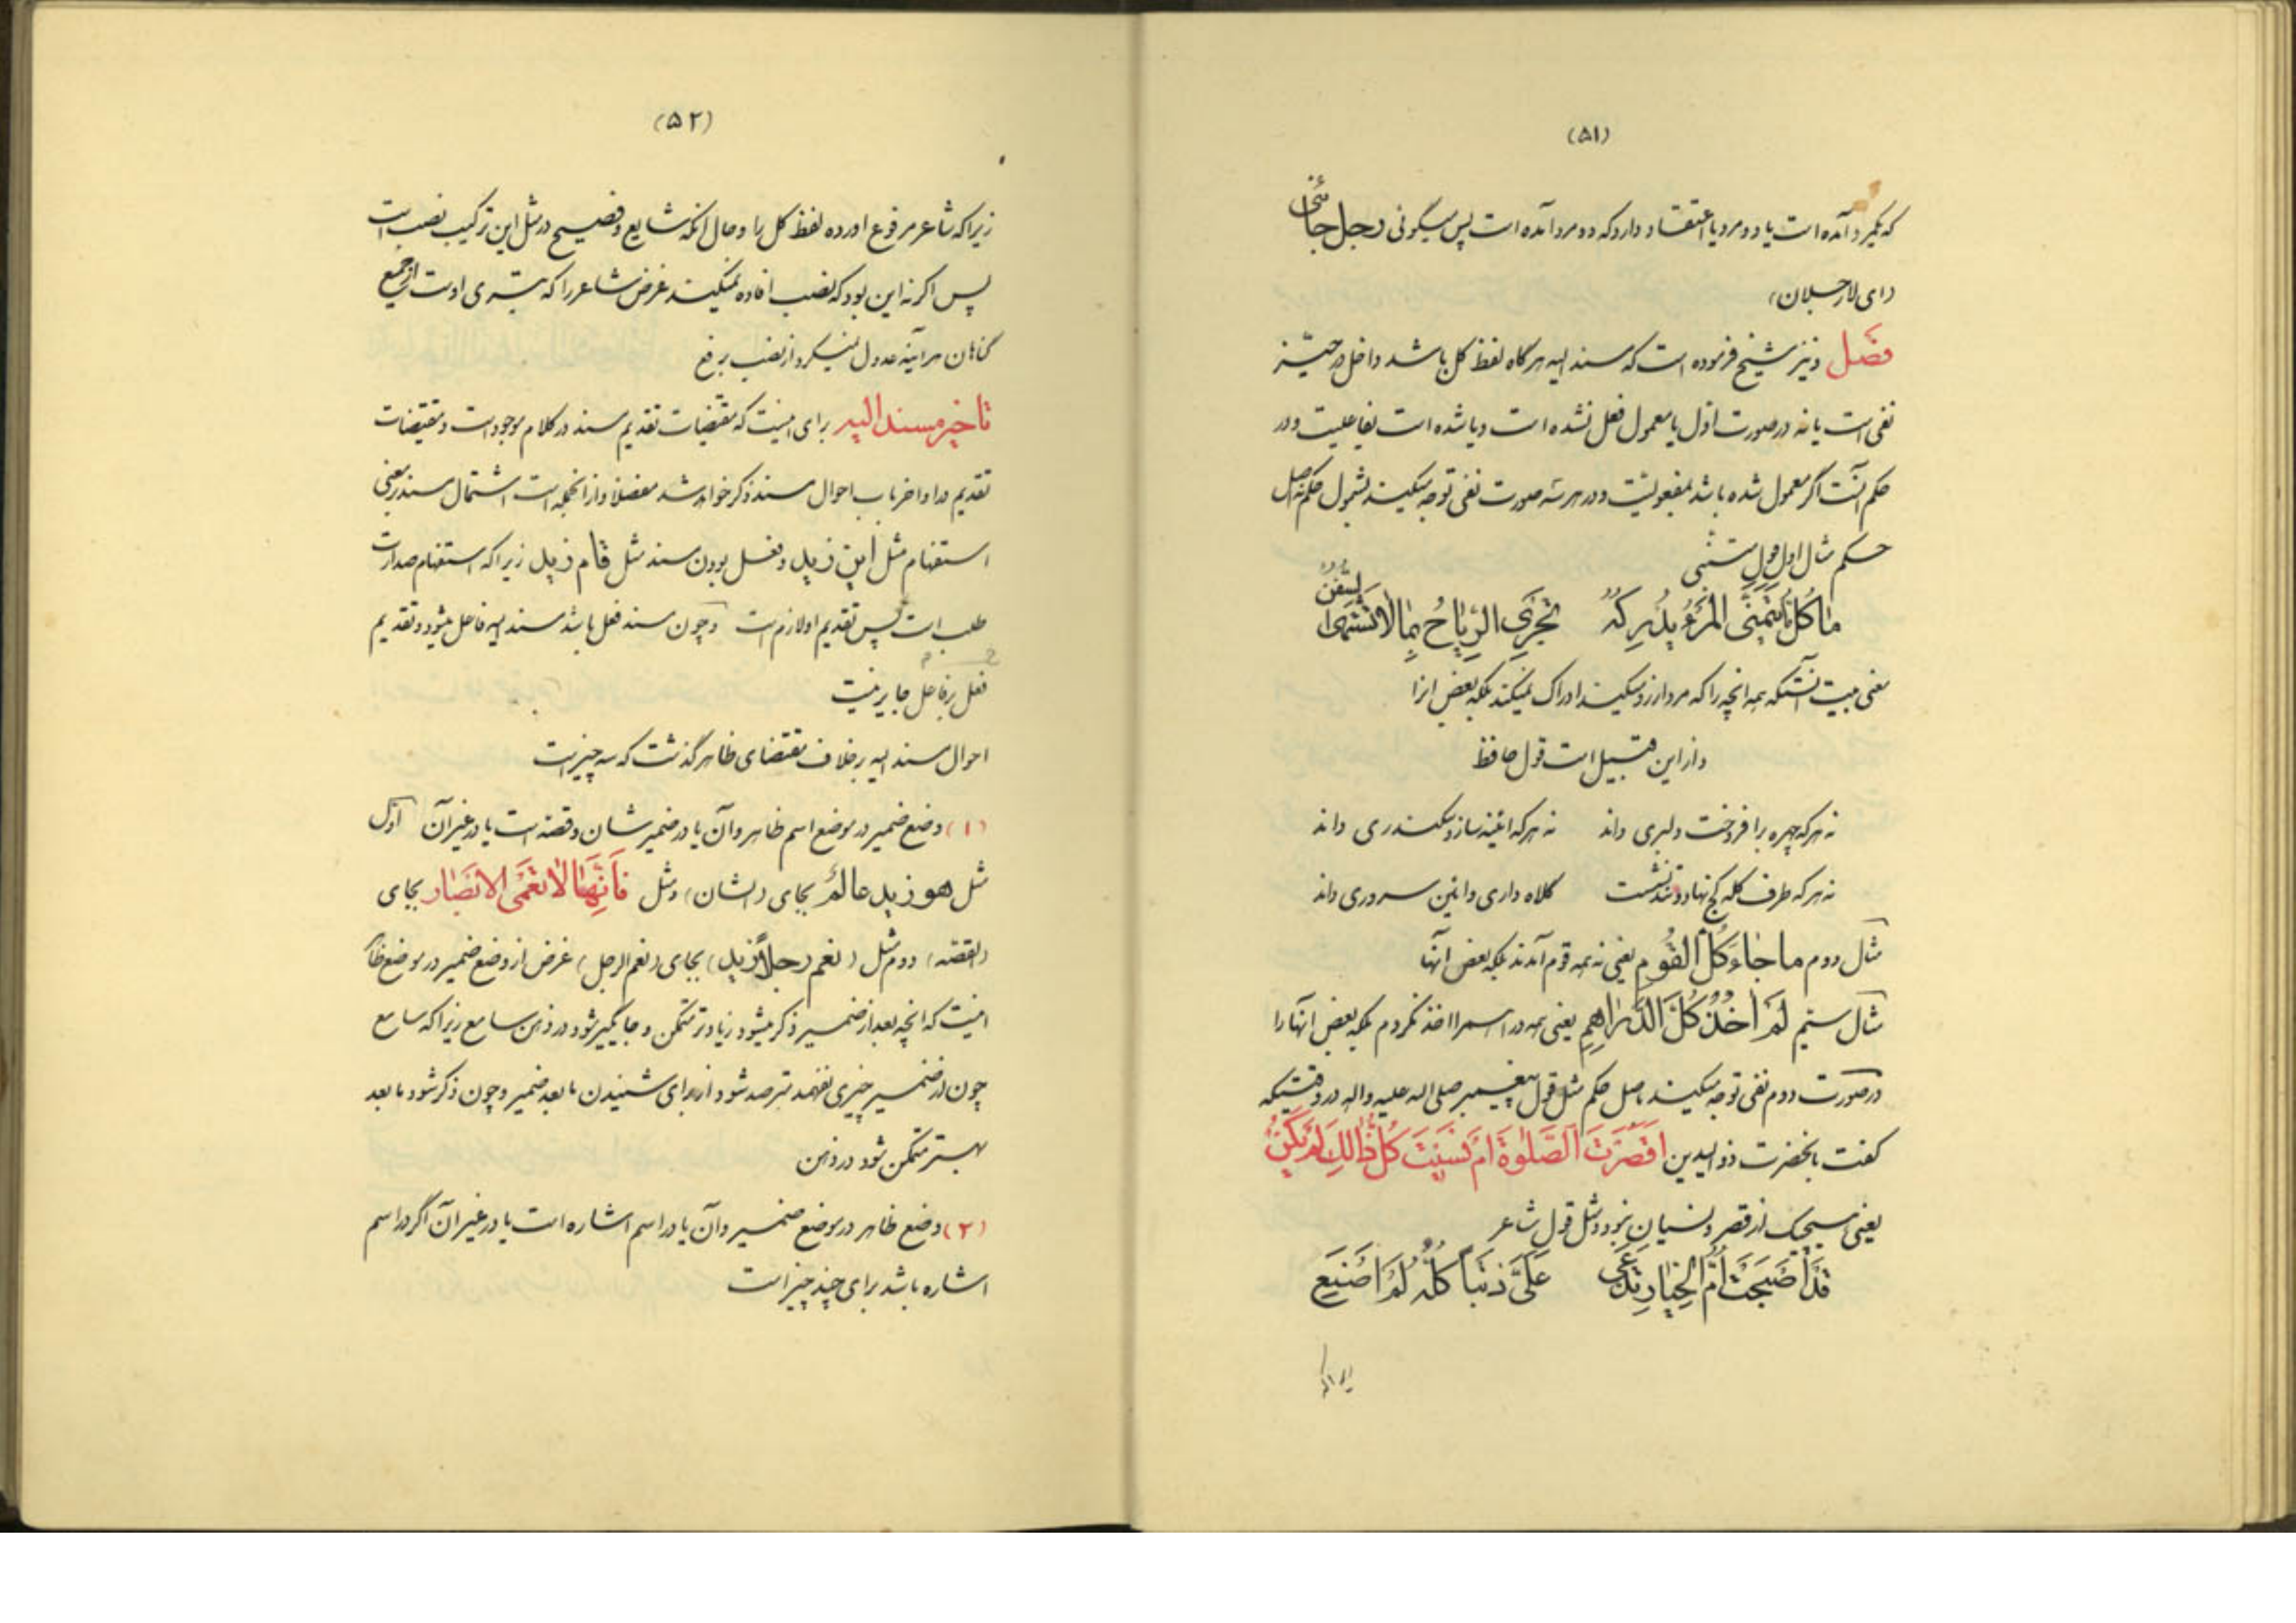 (۵۱)
که یکمرد آمده است یا دو مرد یا اعتقاد دارد که دو مرد آمده است پس میگوئی رجل جائنی
(ای لا رجلان)
فصل و نیز شیخ فرموده است که مسند الیه هرگاه لفظ کل باشد داخل در حیّز
نفی است یا نه در صورت اوّل یا معمول فعل نشده است و یا شده است بفاعلیت و در
حکم آنست اگر معمول شده باشد بمفعولیت و در هر سه صورت نفی توجه میکند بشمول حکم نه اصل
حکم مثال اول قول متنبی
ما کُلُّ ما یَتَمَنَّی المَرْءُ یُدْرِکُهُ تَجْرِی الرِّیاحُ بِما لا تَشْتَهِی السُّفُنُ
معنی بیت آنستکه همه انچه را که مرد ارزو میکند ادراک نمیکند بلکه بعض انرا
و از این قبیل است قول حافظ
نه هر که چهره برافروخت دلبری داند نه هر که ائینه سازد سکندری داند
نه هر که طرف کله کج نهاد و تند نشست کلاه داری و ائین سروری داند
مثال دوم ما جاءَ کُلُّ القَومِ یعنی نه همه قوم آمدند بلکه بعض آنها
مثال سیّم لَمْ اَخُذْ کُلَّ الدَّراهِمِ یعنی همه دراهم را اخذ نکردم بلکه بعض آنها را
در صورت دوم نفی توجه میکند باصل حکم مثل قول پیغمبر صلی اله علیه واله در وقتیکه
گفت بانحضرت ذوالیدین اَقَصُرَتَ الصَّلوةَ اَمْ نَسَیْتَ کُلُّ ذالِکَ لَمْ یَکُنْ
یعنی هیچیک از قصر و نسیان نبود و مثل قول شاعر
قَدْ اَصْبَحَتْ اُمُّ الخِیارِ تَدَّعی عَلَیَّ ذَنْباً کُلُّهُ لَمْ اَصْنَعِ
زیراکه
(۵۲)
زیراکه شاعر مرفوع اورده لفظ کل را و حال انکه شایع و فصیح در مثل این ترکیب نصب است
پس اگر نه این بود که نصب افاده نمیکند غرض شاعر را که تبری اوست از جمیع
گناهان هر آینه عدول نمیکرد از نصب برفع
تاخیر مسند الیه برای اینست که مقتضیات تقدیم مسند در کلام موجود است و مقتضیات
تقدیم در اواخر باب احوال مسند ذکر خواهد شد مفصلاً و از انجمله است اشتمال مسند بر معنی
استفهام مثل این زید و فعل بودن مسند مثل قام زید زیراکه استفهام صدارت
طلب است پس تقدیم او لازم است و چون مسند فعل باشد مسند الیه فاعل میشود و تقدیم
فعل بر فاعل جایز نیست
احوال مسند الیه بر خلاف مقتضای ظاهر گذشت که سه چیز است
(۱) وضع ضمیر در موضع اسم ظاهر و آن یا در ضمیر شان و قصه است یا در غیر آن اوّل
مثل هو زید عالمٌ بجای (الشان) و مثل فَاِنَّها لا تَعْمَی الاَبْصار بجای
(القصه) دوم مثل (نعم رجلاً زید) بجای (نعم الرجل) غرض از وضع ضمیر در موضع ظاهر
اینست که انچه بعد از ضمیر ذکر میشود زیادتر متمکن و جایگیر شود در ذهن سامع زیراکه سامع
چون از ضمیر چیزی نفهمد مترصد شود از برای شنیدن ما بعد ضمیر و چون ذکر شود ما بعد
بهتر متمکن شود در ذهن
(۲) وضع ظاهر در موضع ضمیر و آن یا در اسم اشاره است یا در غیر آن اگر در اسم
اشاره باشد برای چند چیز است